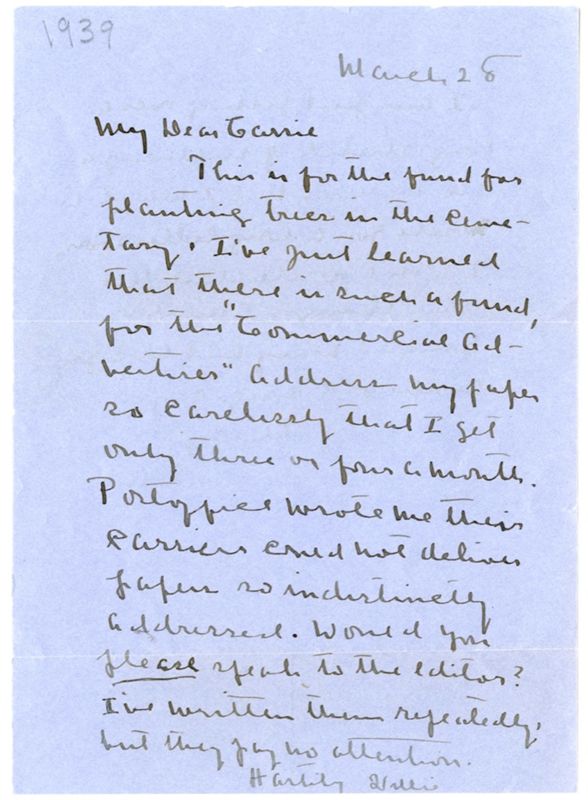 1939
March 28
My Dear Carrie
This is for the fund for
planting trees in the ceme-
tary. I've just learned
that there is such a fund,
for the "Commercial Ad-
vertiser" address my paper
so carelessly that I get
only three or four a month.
Postoffice wrote me their
carriers could not deliver
papers so indistinctly
addressed. Would you
please speak to the editor?
I've written them repeatedly,
but they pay no attention.
Hastily Willie